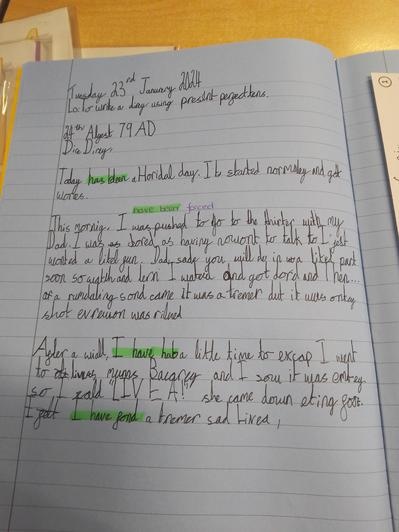 Tuesday 23rd January 2024
Lo: to write a diary using present perfect tens.
24th Algest 79 AD
Dire Direy,
Today has been a Horidal day. It started normaley and got
wores.
have been forced
This mornig. I was pushed to go to the thirter with my
Dad. I was as bored as having nowont to talk to I just
wonted a litel fun. Dad, sady you will be in a Likel part
soon so watch and lern I watced and got bord and Then...
of a rumdeling sond came It was a tremer but it was onley
shot
After a will, I have had a little time to excap I went
to and I sow it was emtey
so I "LIVEA!" she came down eting
I have fond a tremer sad Lived,